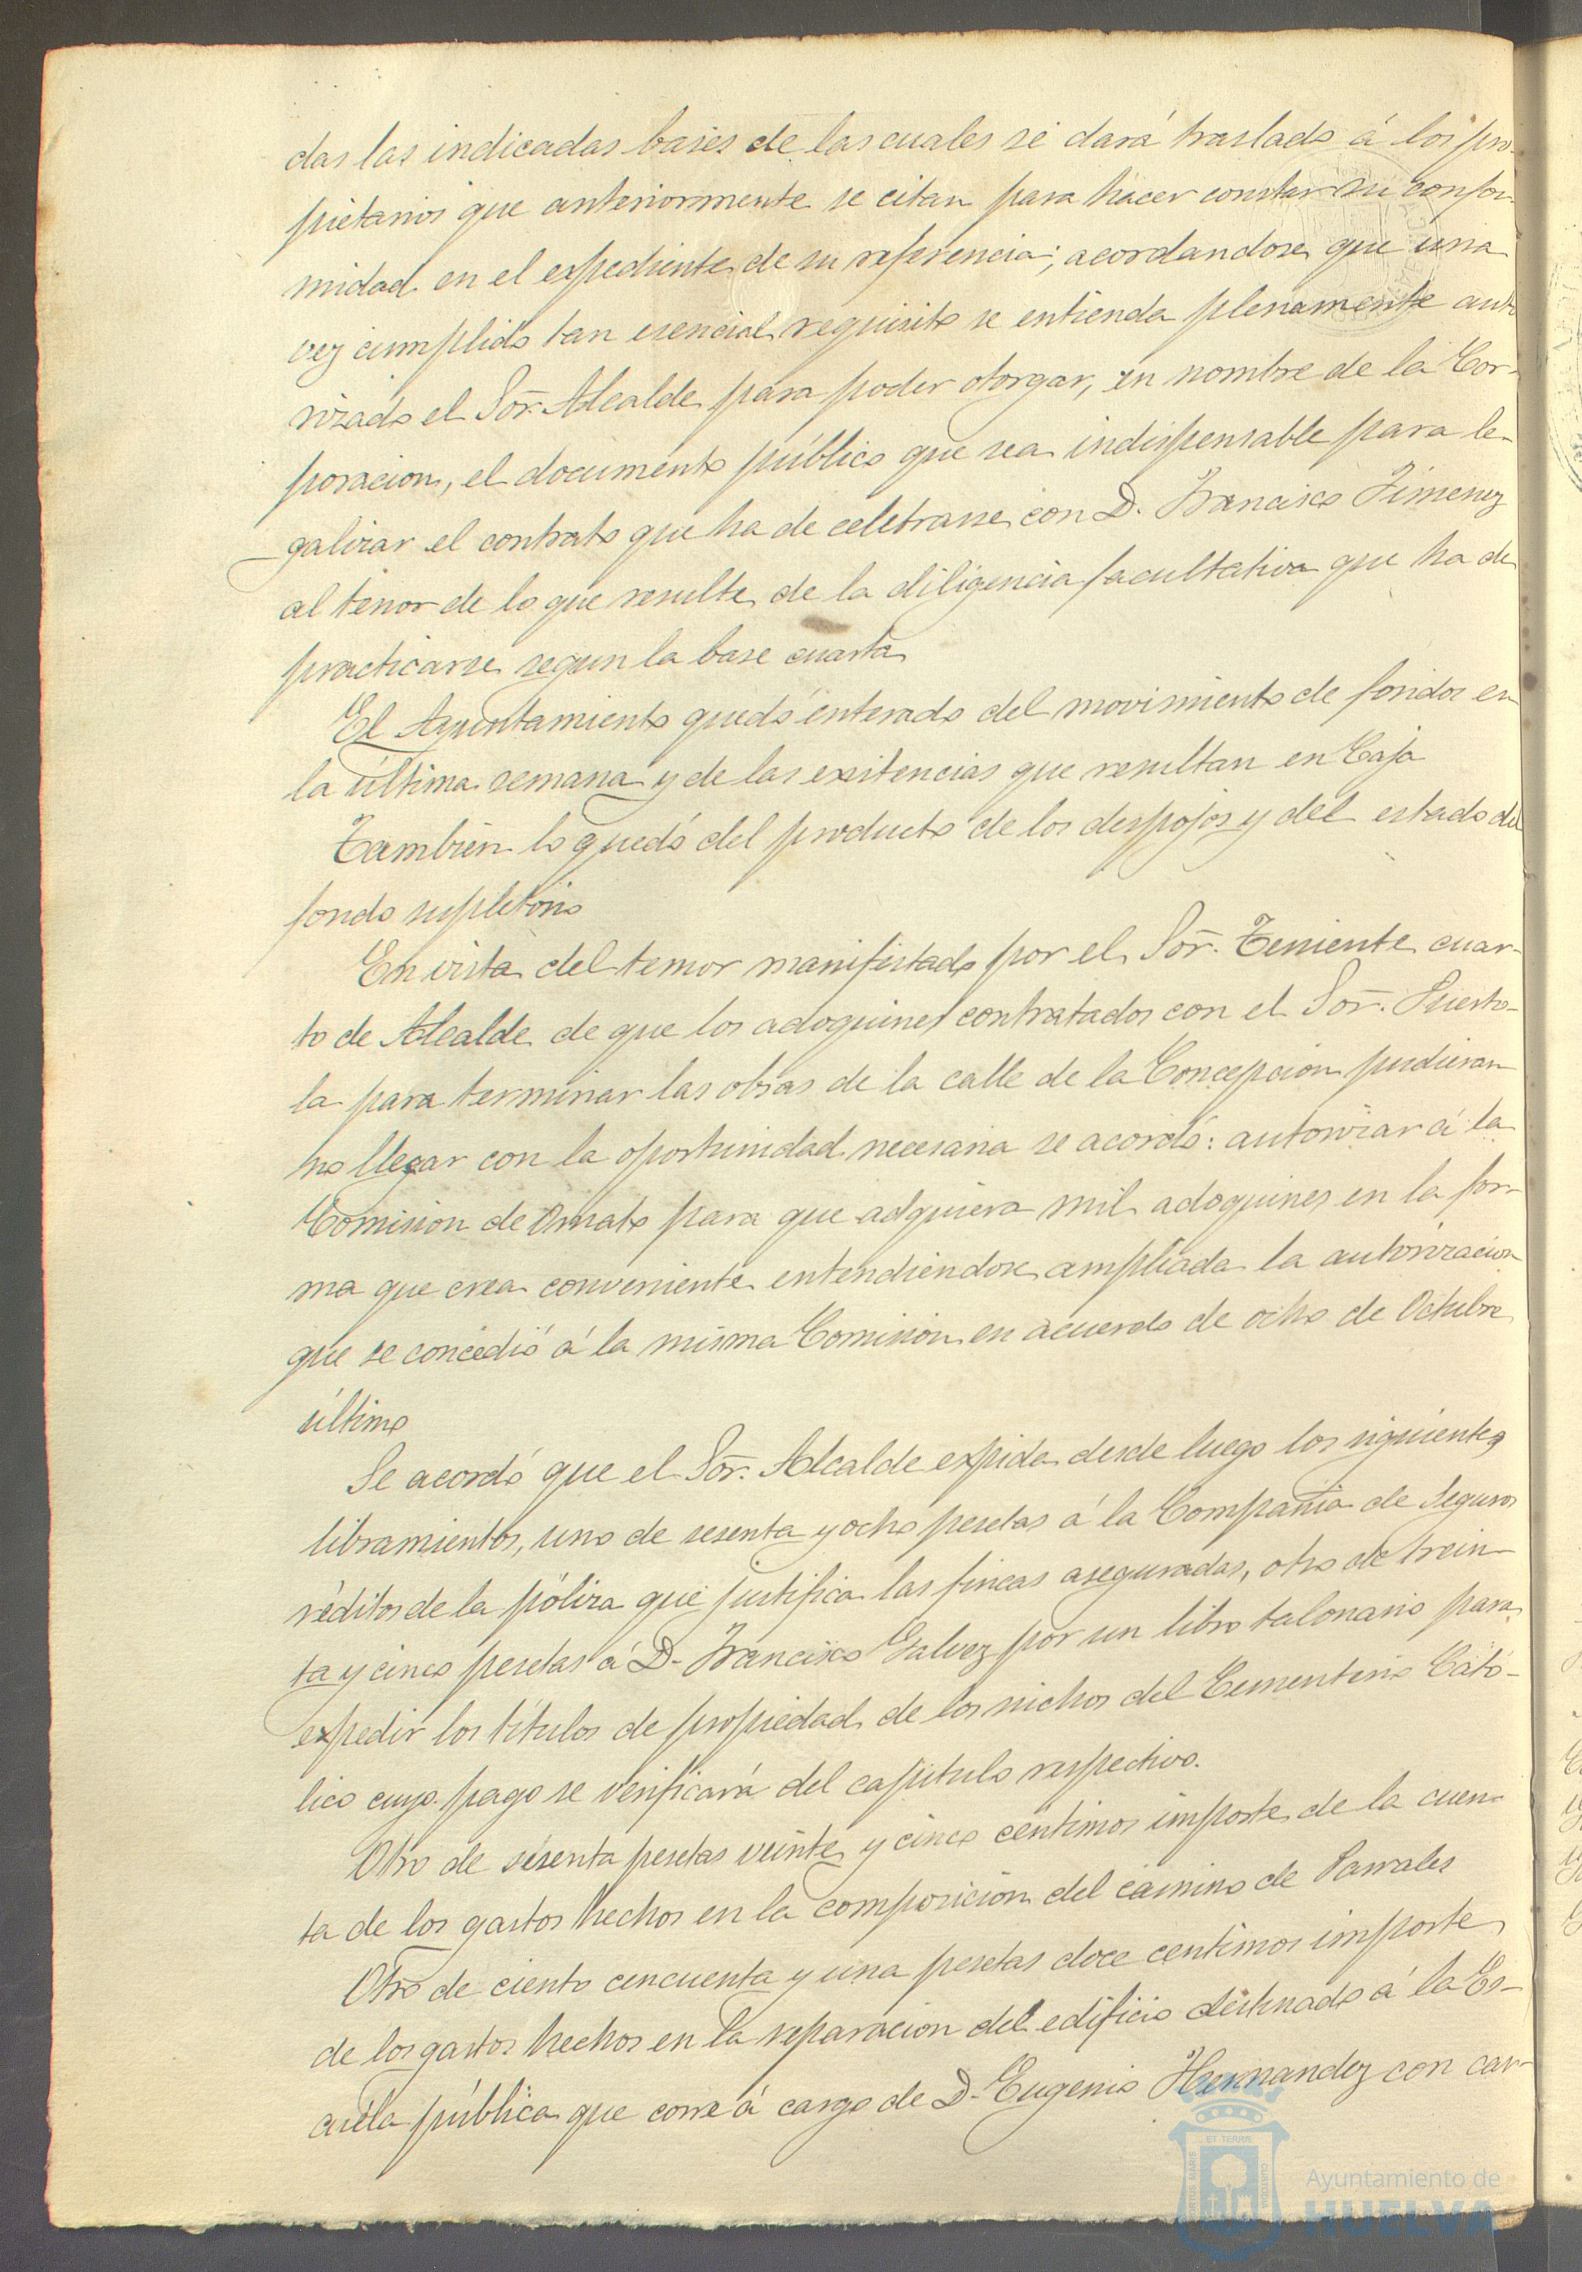 das las indicadas bases de las cuales se dará traslado á los pro-
pietarios que anteriormente se citan para hacer constar su confor-
midad en el expediente de su referencia; acordandose que una
vez cumplido tan esencial requisito se entienda plenamente auto
rizado el Sor. Alcalde para poder otorgar, en nombre de la Cor-
poracion, el documento público que sea indispensable para le-
galizar el contrato que ha de celebrarse con D. Francisco Jimenez
al tenor de lo que resulte de la diligencia facultativa que ha de
practicarse segun la base cuarta
El Ayuntamiento quedó enterado del movimiento de fondos en
la última semana y de las exitencias que resultan en Caja
Tambien lo quedó del producto de los despojos y del estado del
fondo supletorio
En vista del temor manifestado por el Sor. Teniente cuar-
to de Alcalde de que los adoquines contratados con el Sor. Puerto-
la para terminar las obras de la calle de la Concepcion pudieran
no llegar con la oportunidad necesaria se acordó: autorizar á la
Comision de Ornato para que adquiera mil adoquines en la for-
ma que crea conveniente entendiendose ampliada la autorizacion
que se concedió á la misma Comision en acuerdo de ocho de Octubre
último
Se acordó que el Sor. Alcalde expida desde luego los siguientes
libramientos, uno de sesenta y ocho pesetas á la Compañia de Seguros
réditos de la póliza que justifica las fincas aseguradas, otro de trein-
ta y cinco pesetas á D. Francisco Galvez por un libro talonario para
expedir los títulos de propiedad de los nichos del Cementerio Cató-
lico cuyo pago se verificará del capitulo respectivo.
Otro de sesenta pesetas veinte y cinco céntimos importe de la cuen-
ta de los gastos hechos en la composicion del camino de Parrales
Otro de ciento cincuenta y una pesetas doce centimos importe
de los gastos hechos en la reparacion del edificio destinado á la Es-
cuela pública que corre á cargo de D. Eugenio Hernandez con car-
Ayuntamiento de
HUELVA